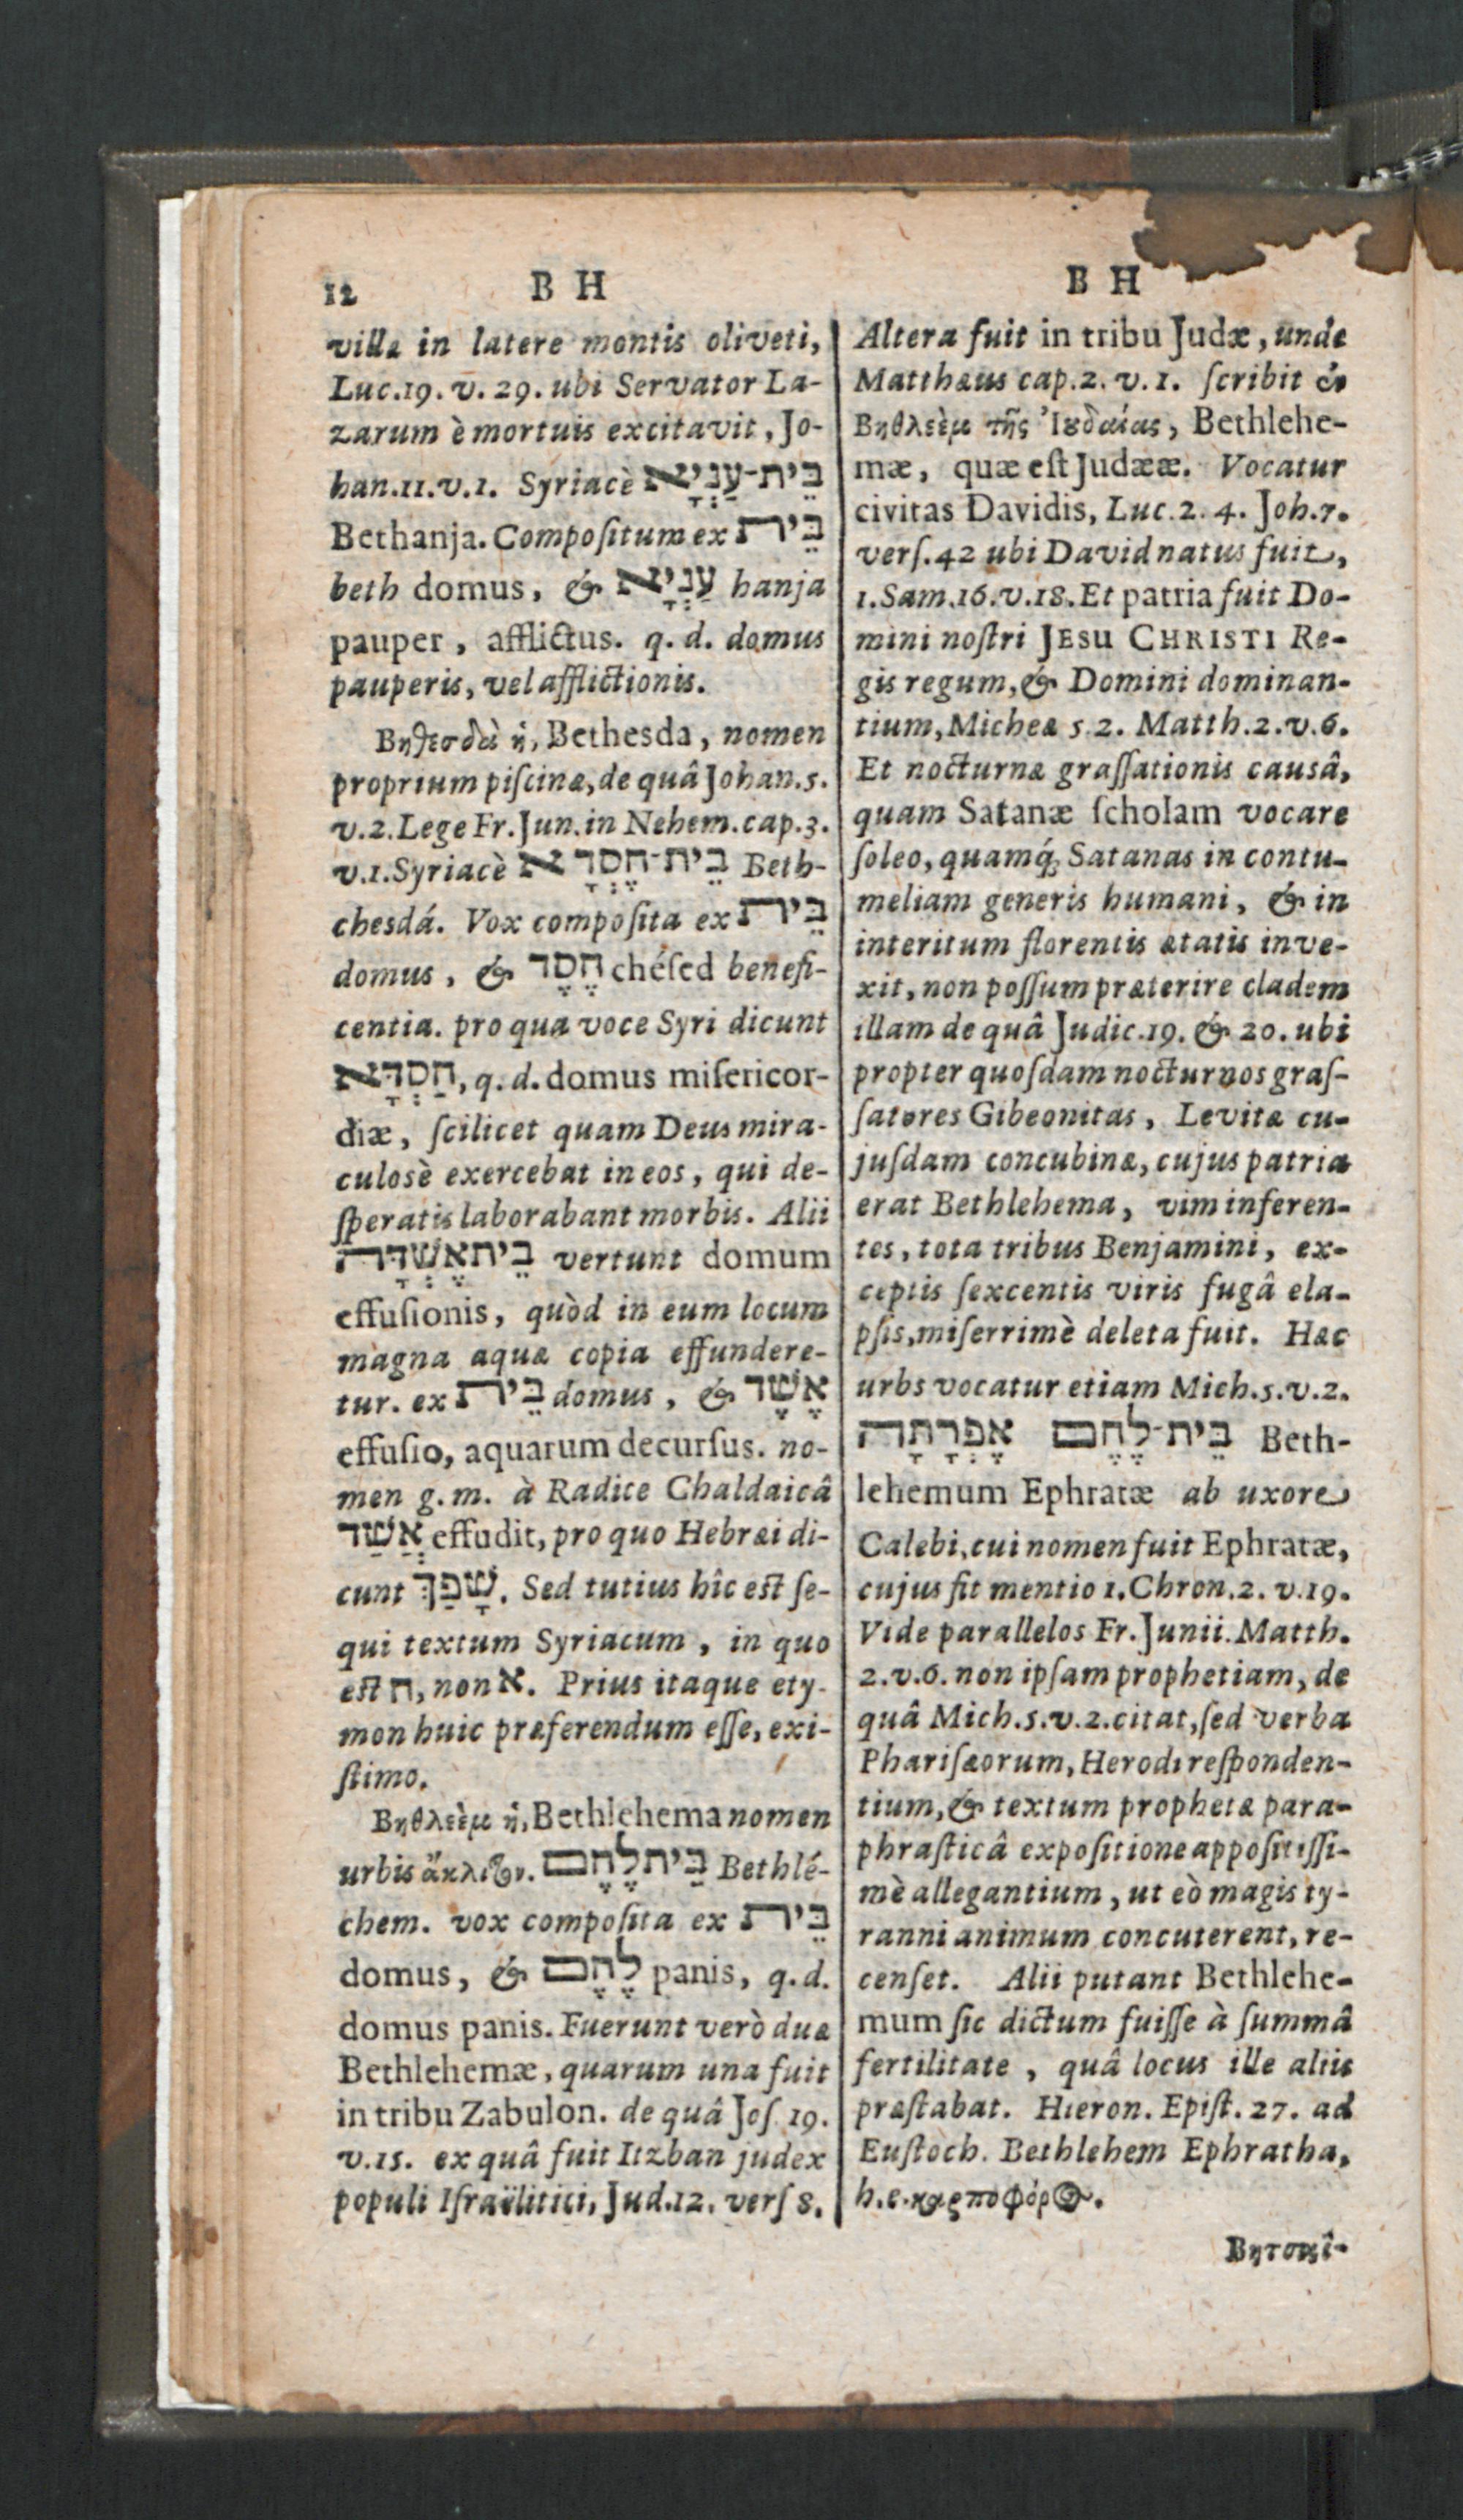 12 B H
villa in latere montis oliveti,
Luc.19. v. 29. ubi Servator La-
zarum è mortuis excitavit, Jo-
han.11.v.1. Syriacè בֵּית־עַנְיָא
Bethanja. Compoſitum ex בֵּית
beth domus, & עַנְיָא hanja
pauper, afflictus. q. d. domus
pauperis, vel afflictionis.
Βηθεσδὰ ἡ, Bethesda, nomen
proprium piſcinæ, de quâ Johan.5.
v.2. Lege Fr. Jun. in Nehem. cap.3.
v.1. Syriacè בֵּית־חֶסְדָּא Beth-
chesdá. Vox compoſita ex בֵּית
domus, & חֶסֶד chéſed benefi-
centia. pro qua voce Syri dicunt
חַסְדָּא, q. d. domus miſericor-
diæ, ſcilicet quam Deus mira-
culosè exercebat in eos, qui de-
ſperatis laborabant morbis. Alii
בֵּיתאֶשְׁדָּה vertunt domum
effuſionis, quòd in eum locum
magna aquæ copia effundere-
tur. ex בֵּית domus, & אֶשֶׁד
effuſio, aquarum decurſus. no-
men g. m. à Radice Chaldaicâ
אֲשַׁד effudit, pro quo Hebræi di-
cunt שָׁפַךְ. Sed tutius hîc est ſe-
qui textum Syriacum, in quo
est ח, non א. Prius itaque ety-
mon huic præferendum eſſe, exi-
ſtimo.
Βηθλεὲμ ἡ, Bethlehema nomen
urbis ἄκλιτον. בֵּיתלֶחֶם Bethlé-
chem. vox compoſita ex בֵּית
domus, & לֶחֶם panis, q. d.
domus panis. Fuerunt verò duæ
Bethlehemæ, quarum una fuit
in tribu Zabulon. de quâ Joſ. 19.
v.15. ex quâ fuit Itzban judex
populi Iſraëlitici, Jud.12. verſ 8.
B H
Altera fuit in tribu Judæ, unde
Matthæus cap.2. v. 1. ſcribit ἐν
Βηθλεὲμ τῆς Ἰουδαίας, Bethlehe-
mæ, quæ eſt Judææ. Vocatur
civitas Davidis, Luc. 2. 4. Joh.7.
verſ.42 ubi David natus fuit,
1. Sam.16. v.18. Et patria fuit Do-
mini noſtri JESU CHRISTI Re-
gis regum, & Domini dominan-
tium, Micheæ 5. 2. Matth.2. v.6.
Et nocturnæ graſſationis causâ,
quam Satanæ ſcholam vocare
ſoleo, quamq́; Satanas in contu-
meliam generis humani, & in
interitum florentis ætatis inve-
xit, non poſſum præterire cladem
illam de quâ Judic.19. & 20. ubi
propter quoſdam nocturnos graſ-
ſatores Gibeonitas, Levitæ cu-
juſdam concubinæ, cujus patria
erat Bethlehema, vim inferen-
tes, tota tribus Benjamini, ex-
ceptis ſexcentis viris fugâ ela-
pſis, miſerrimè deleta fuit. Hæc
urbs vocatur etiam Mich.5.v.2.
בֵּית־לֶחֶם אֶפְרָתָה Beth-
lehemum Ephratæ ab uxore
Calebi, cui nomen fuit Ephratæ,
cujus fit mentio 1. Chron.2. v.19.
Vide parallelos Fr. Junii. Matth.
2. v.6. non ipſam prophetiam, de
quâ Mich.5.v.2. citat, ſed verba
Phariſæorum, Herodi reſponden-
tium, & textum prophetæ para-
phraſticâ expoſitione appoſitiſſi-
mè allegantium, ut eò magis ty-
ranni animum concuterent, re-
cenſet. Alii putant Bethlehe-
mum ſic dictum fuiſſe à ſummâ
fertilitate, quâ locus ille aliis
præſtabat. Hieron. Epiſt. 27. ad
Euſtoch. Bethlehem Ephratha,
h. e. καρποφόρος.
Βητσαϊ-